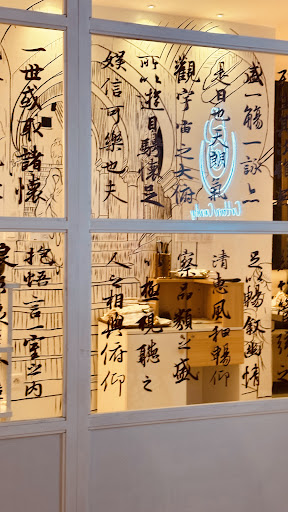 盛一觴一詠亦
足以暢叙幽情
是日也天朗氣
清惠風和暢仰
觀宇宙之大俯
察品類之盛
所以遊目騁懷足
以極視聽之
娛信可樂也夫
人之相與俯仰
一世或取諸懷
抱悟言一室之内